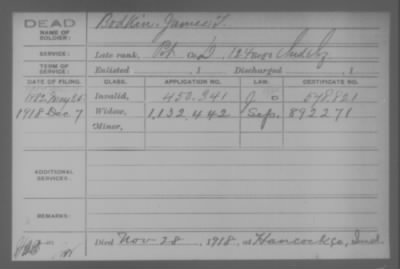 DEAD
NAME OF SOLDIER: Bodkin, James T.
SERVICE: Late rank, Pvt. Co. D, 12 Ind Inf
TERM OF SERVICE: Enlisted , 1 Discharged , 1
DATE OF FILING. CLASS. APPLICATION NO. LAW. CERTIFICATE NO.
Invalid, 450.341 578.821
1918 Dec 7 Widow, 1,132.442 Sep. 892271
Minor,
ADDITIONAL SERVICES:
REMARKS:
Died Nov 28, 1918, at Hancock Co, Ind.